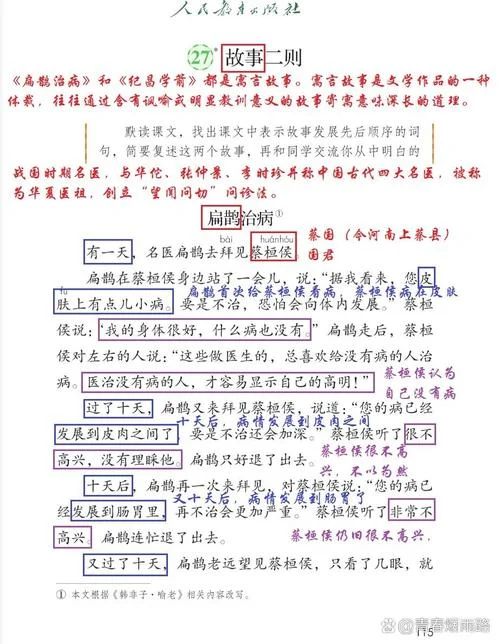 人民教育出版社
27 故事二则
《扁鹊治病》和《纪昌学箭》都是寓言故事。寓言故事是文学作品的一种
体裁，往往通过含有讽喻或明显教训意义的故事寄寓意味深长的道理。
默读课文，找出课文中表示故事发展先后顺序的词
句，简要复述这两个故事，再和同学交流你从中明白的
战国时期名医，与华佗、张仲景、李时珍并称中国古代四大名医，被称
为华夏医祖，创立“望闻问切”问诊法。
扁鹊治病①
蔡国（今河南上蔡县）
bài huánhóu
有一天，名医扁鹊去拜见蔡桓侯。
国君
扁鹊在蔡桓侯身边站了一会儿，说：“据我看来，您皮
fū
扁鹊首次给蔡桓侯看病，蔡桓侯病在皮肤
肤上有点儿小病。要是不治，恐怕会向体内发展。”蔡桓
侯说：“我的身体很好，什么病也没有。”扁鹊走后，蔡桓
侯对左右的人说：“这些做医生的，总喜欢给没有病的人治
病。医治没有病的人，才容易显示自己的高明！”
蔡桓侯认为
自己没有病
过了十天，扁鹊又来拜见蔡桓侯，说道：“您的病已经
十天后，病情发展到皮肉之间
发展到皮肉之间了，要是不治还会加深。”蔡桓侯听了很不
高兴，没有理睬他。扁鹊只好退了出去。
蔡桓侯很不高
兴，不以为然
十天后，扁鹊再一次来拜见，对蔡桓侯说：“您的病已
又十天后，病情发展到肠胃了
经发展到肠胃里，再不治会更加严重。”蔡桓侯听了非常不
高兴。扁鹊连忙退了出去。
蔡桓侯仍旧很不高兴。
又过了十天，扁鹊老远望见蔡桓侯，只看了几眼，就
① 本文根据《韩非子·喻老》相关内容改写。
115
@青春烟雨路